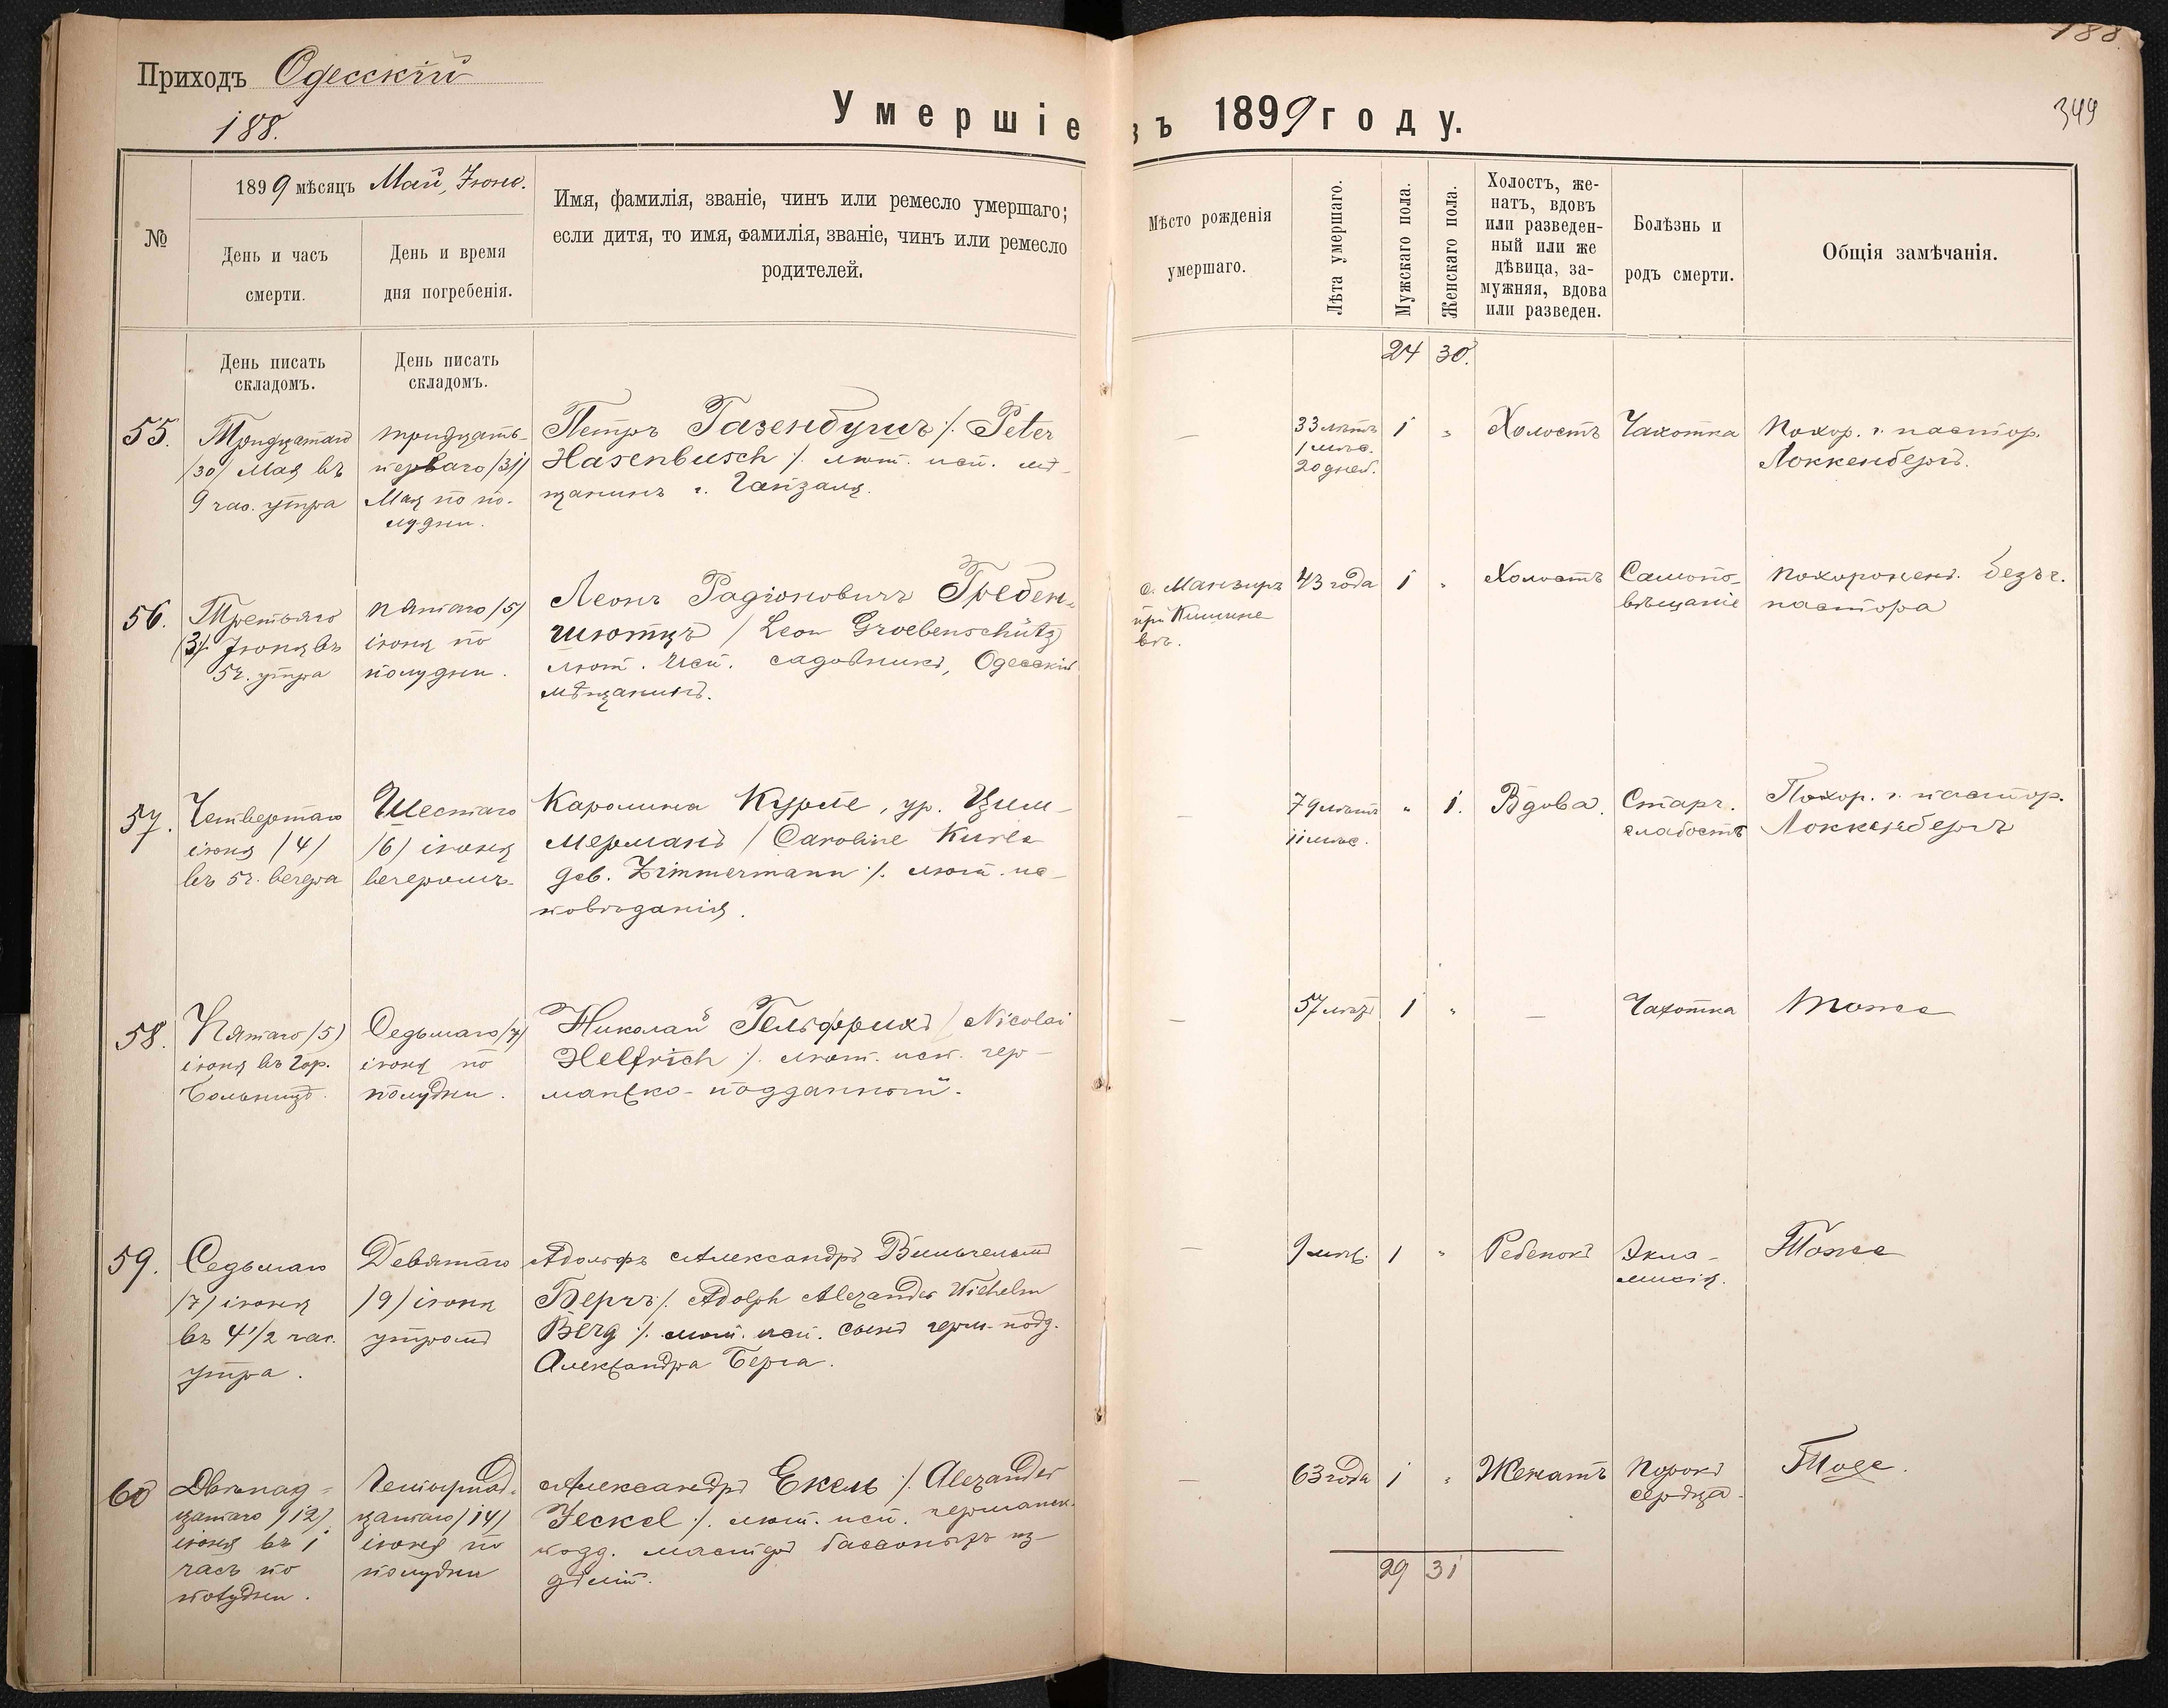 Приходъ Одесскій
188.
Умершіе въ 1899 году.
188
349
№
1899 мѣсяцъ Май, Іюнь.
День и часъ
смерти.
День и время
дня погребенія.
Имя, фамилія, званіе, чинъ или ремесло умершаго;
если дитя, то имя, фамилія, званіе, чинъ или ремесло
родителей.
Мѣсто рожденія
умершаго.
Лѣта умершаго.
Мужскаго пола.
Женскаго пола.
Холостъ, же-
натъ, вдовъ
или разведен-
ный или же
дѣвица, за-
мужняя, вдова
или разведен.
Болѣзнь и
родъ смерти.
Общія замѣчанія.
День писать
складомъ.
День писать
складомъ.
24 30.
55.
Тридцатаго
/30/ Мая въ
9 час. утра
тридцать-
перваго /31/
Мая по по-
лудни.
Петръ Газенбушъ /. Peter
Hasenbusch /. лют. исп. мѣ-
щанинъ г. Гапзаля.
—
33 лѣтъ
1 мѣс.
20 дней.
1 "
Холостъ
Чахотка
Похор. г. пастор.
Локкенбергъ.
56.
Третьяго
(3) Іюня въ
5 ч. утра
пятаго /5/
іюня по
полудни.
Леонъ Радіоновичъ Гребен-
шютцъ / Leon Groebenschütz
лют. исп. садовникъ, Одесскій
мѣщанинъ.
с. Манзиръ
при Кишине
вѣ.
43 года
1 "
Холостъ
Самопо-
вѣщаніе
похороненъ безъ г.
пастора
57.
Четвертаго
іюня /4/
въ 5 ч. вечера
Шестаго
/6/ іюня
вечеромъ
Каролина Курле, ур. Цим-
мерманъ / Caroline Kurle
geb. Zimmermann /. лют. ис-
повѣданія.
—
79 лѣтъ
11 мѣс.
" 1.
Вдова.
Старч.
слабость
Похор. г. пастор.
Локкенбергъ
58.
Пятаго /5)
іюня въ Гор.
Больницѣ.
Седьмаго /7/
іюня по
полудни.
Николай Гельфрихъ / Nicolai
Helfrich /. лют. исп. гер-
манско-подданный.
—
57 лѣтъ
1 "
—
Чахотка
Тоже
59.
Седьмаго
/7/ іюня
въ 4 1/2 час.
утра.
Девятаго
/9/ іюня
утромъ
Адольфъ Александръ Вильгельмъ
Бергъ /. Adolph Alexander Wilhelm
Berg /. лют. исп. сынъ герм. подд.
Александра Берга.
—
9 мѣс.
1 "
Ребенокъ
Экла-
мпсія.
Тоже
60
Двѣнад-
цатаго /12/
іюня въ 1
часъ по
полудни.
Четырнад-
цатаго /14/
іюня по
полудни
Александръ Екель /. Alexander
Jeckel /. лют. исп. германск.
подд. мастеръ
—
63 года
1 "
Женатъ
Порокъ
сердца.
Тоже.
29 31